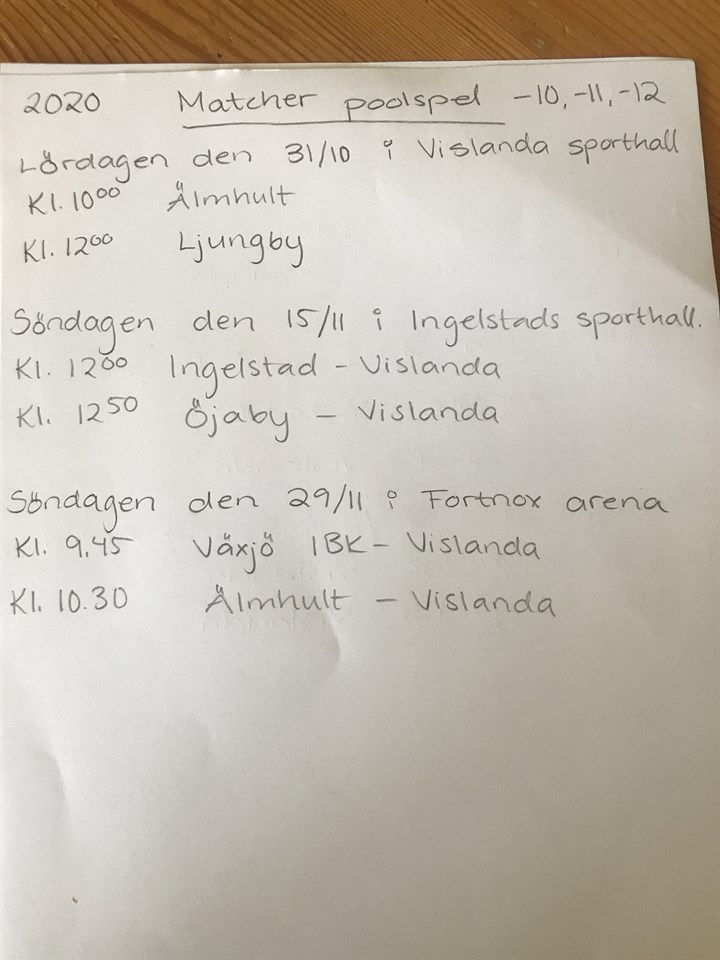 2020 Matcher poolspel -10, -11, -12
Lördagen den 31/10 i Vislanda sporthall
Kl. 10⁰⁰ Älmhult
Kl. 12⁰⁰ Ljungby
Söndagen den 15/11 i Ingelstads sporthall.
Kl. 12⁰⁰ Ingelstad - Vislanda
Kl. 12⁵⁰ Öjaby - Vislanda
Söndagen den 29/11 i Fortnox arena
Kl. 9.45 Växjö IBK - Vislanda
Kl. 10.30 Älmhult - Vislanda